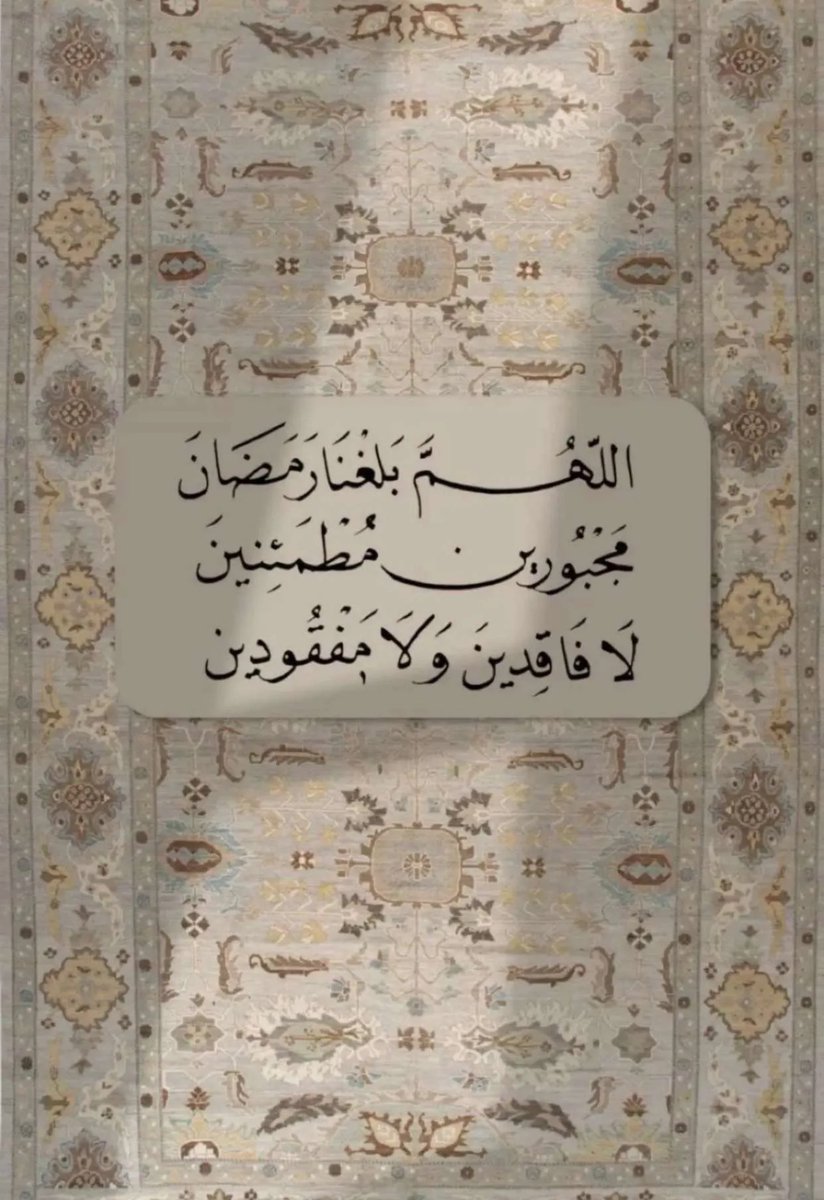 اللّهُمَّ بَلغْنَا رَمَضَانَ
مَجْبُورين مُطْمَئِنِينَ
لَا فَاقِدِينَ وَلَا مَفْقُودِين